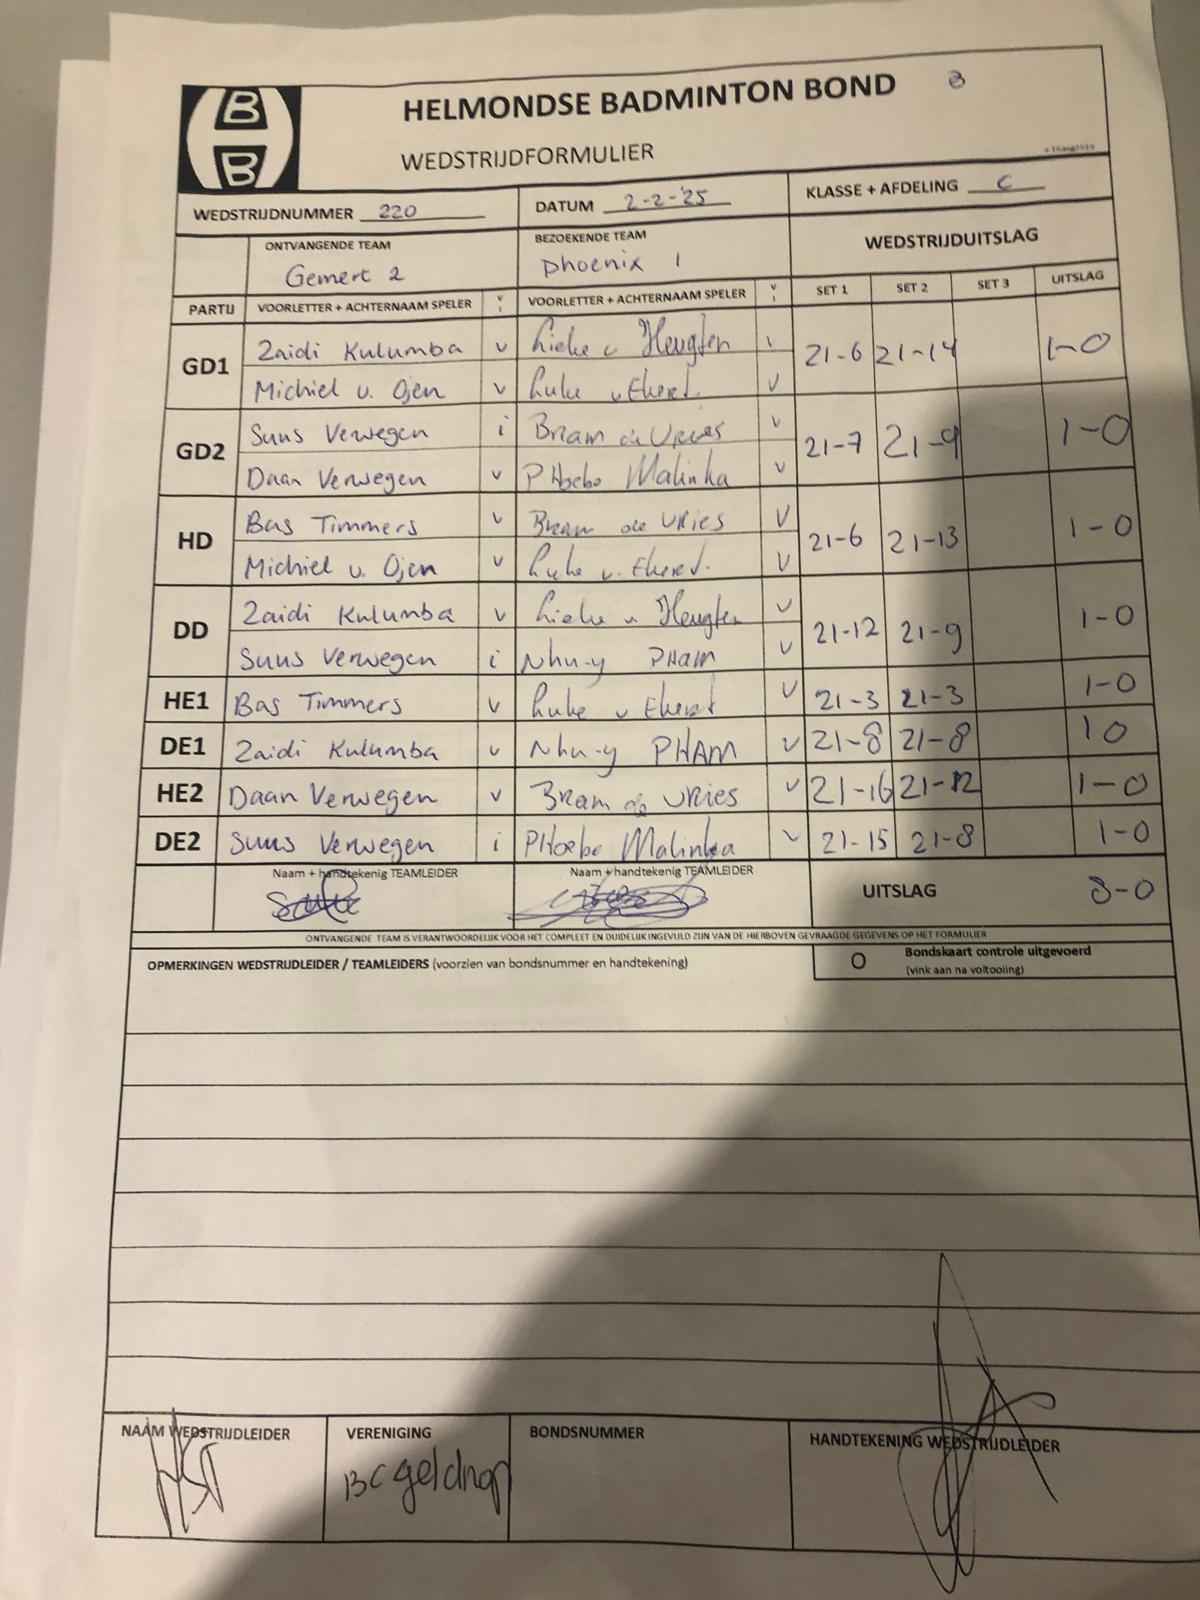 B
B
HELMONDSE BADMINTON BOND B
WEDSTRIJDFORMULIER
WEDSTRIJDNUMMER 220 DATUM 2-2-'25 KLASSE + AFDELING C
ONTVANGENDE TEAM BEZOEKENDE TEAM WEDSTRIJDUITSLAG
Gemert 2 Phoenix 1
PARTIJ VOORLETTER + ACHTERNAAM SPELER V I VOORLETTER + ACHTERNAAM SPELER V I SET 1 SET 2 SET 3 UITSLAG
GD1 Zaidi Kulumba v Lieke v Heugten v 21-6 21-14 1-0
Michiel v. Ojen v Luke v Ekert. v
GD2 Suus Verwegen i Bram de Vries v 21-7 21-9 1-0
Daan Verwegen v PHoebe Malinka v
HD Bas Timmers v Bram de Vries v 21-6 21-13 1-0
Michiel v. Ojen v Luke v. Ekert. v
DD Zaidi Kulumba v Lieke v Heugten v 21-12 21-9 1-0
Suus Verwegen i Nhu-y PHAM v
HE1 Bas Timmers v Luke v Ekert v 21-3 21-3 1-0
DE1 Zaidi Kulumba v Nhu-y PHAM v 21-8 21-8 1 0
HE2 Daan Verwegen v Bram de Vries v 21-16 21-12 1-0
DE2 Suus Verwegen i PHoebe Malinka v 21-15 21-8 1-0
Naam + handtekenig TEAMLEIDER Naam + handtekenig TEAMLEIDER UITSLAG 8-0
ONTVANGENDE TEAM IS VERANTWOORDELIJK VOOR HET COMPLEET EN DUIDELIJK INGEVULD ZIJN VAN DE HIERBOVEN GEVRAAGDE GEGEVENS OP HET FORMULIER
OPMERKINGEN WEDSTRIJDLEIDER / TEAMLEIDERS (voorzien van bondsnummer en handtekening) O Bondskaart controle uitgevoerd
(vink aan na voltooiing)
NAAM WEDSTRIJDLEIDER VERENIGING BONDSNUMMER HANDTEKENING WEDSTRIJDLEIDER
BC geldrop